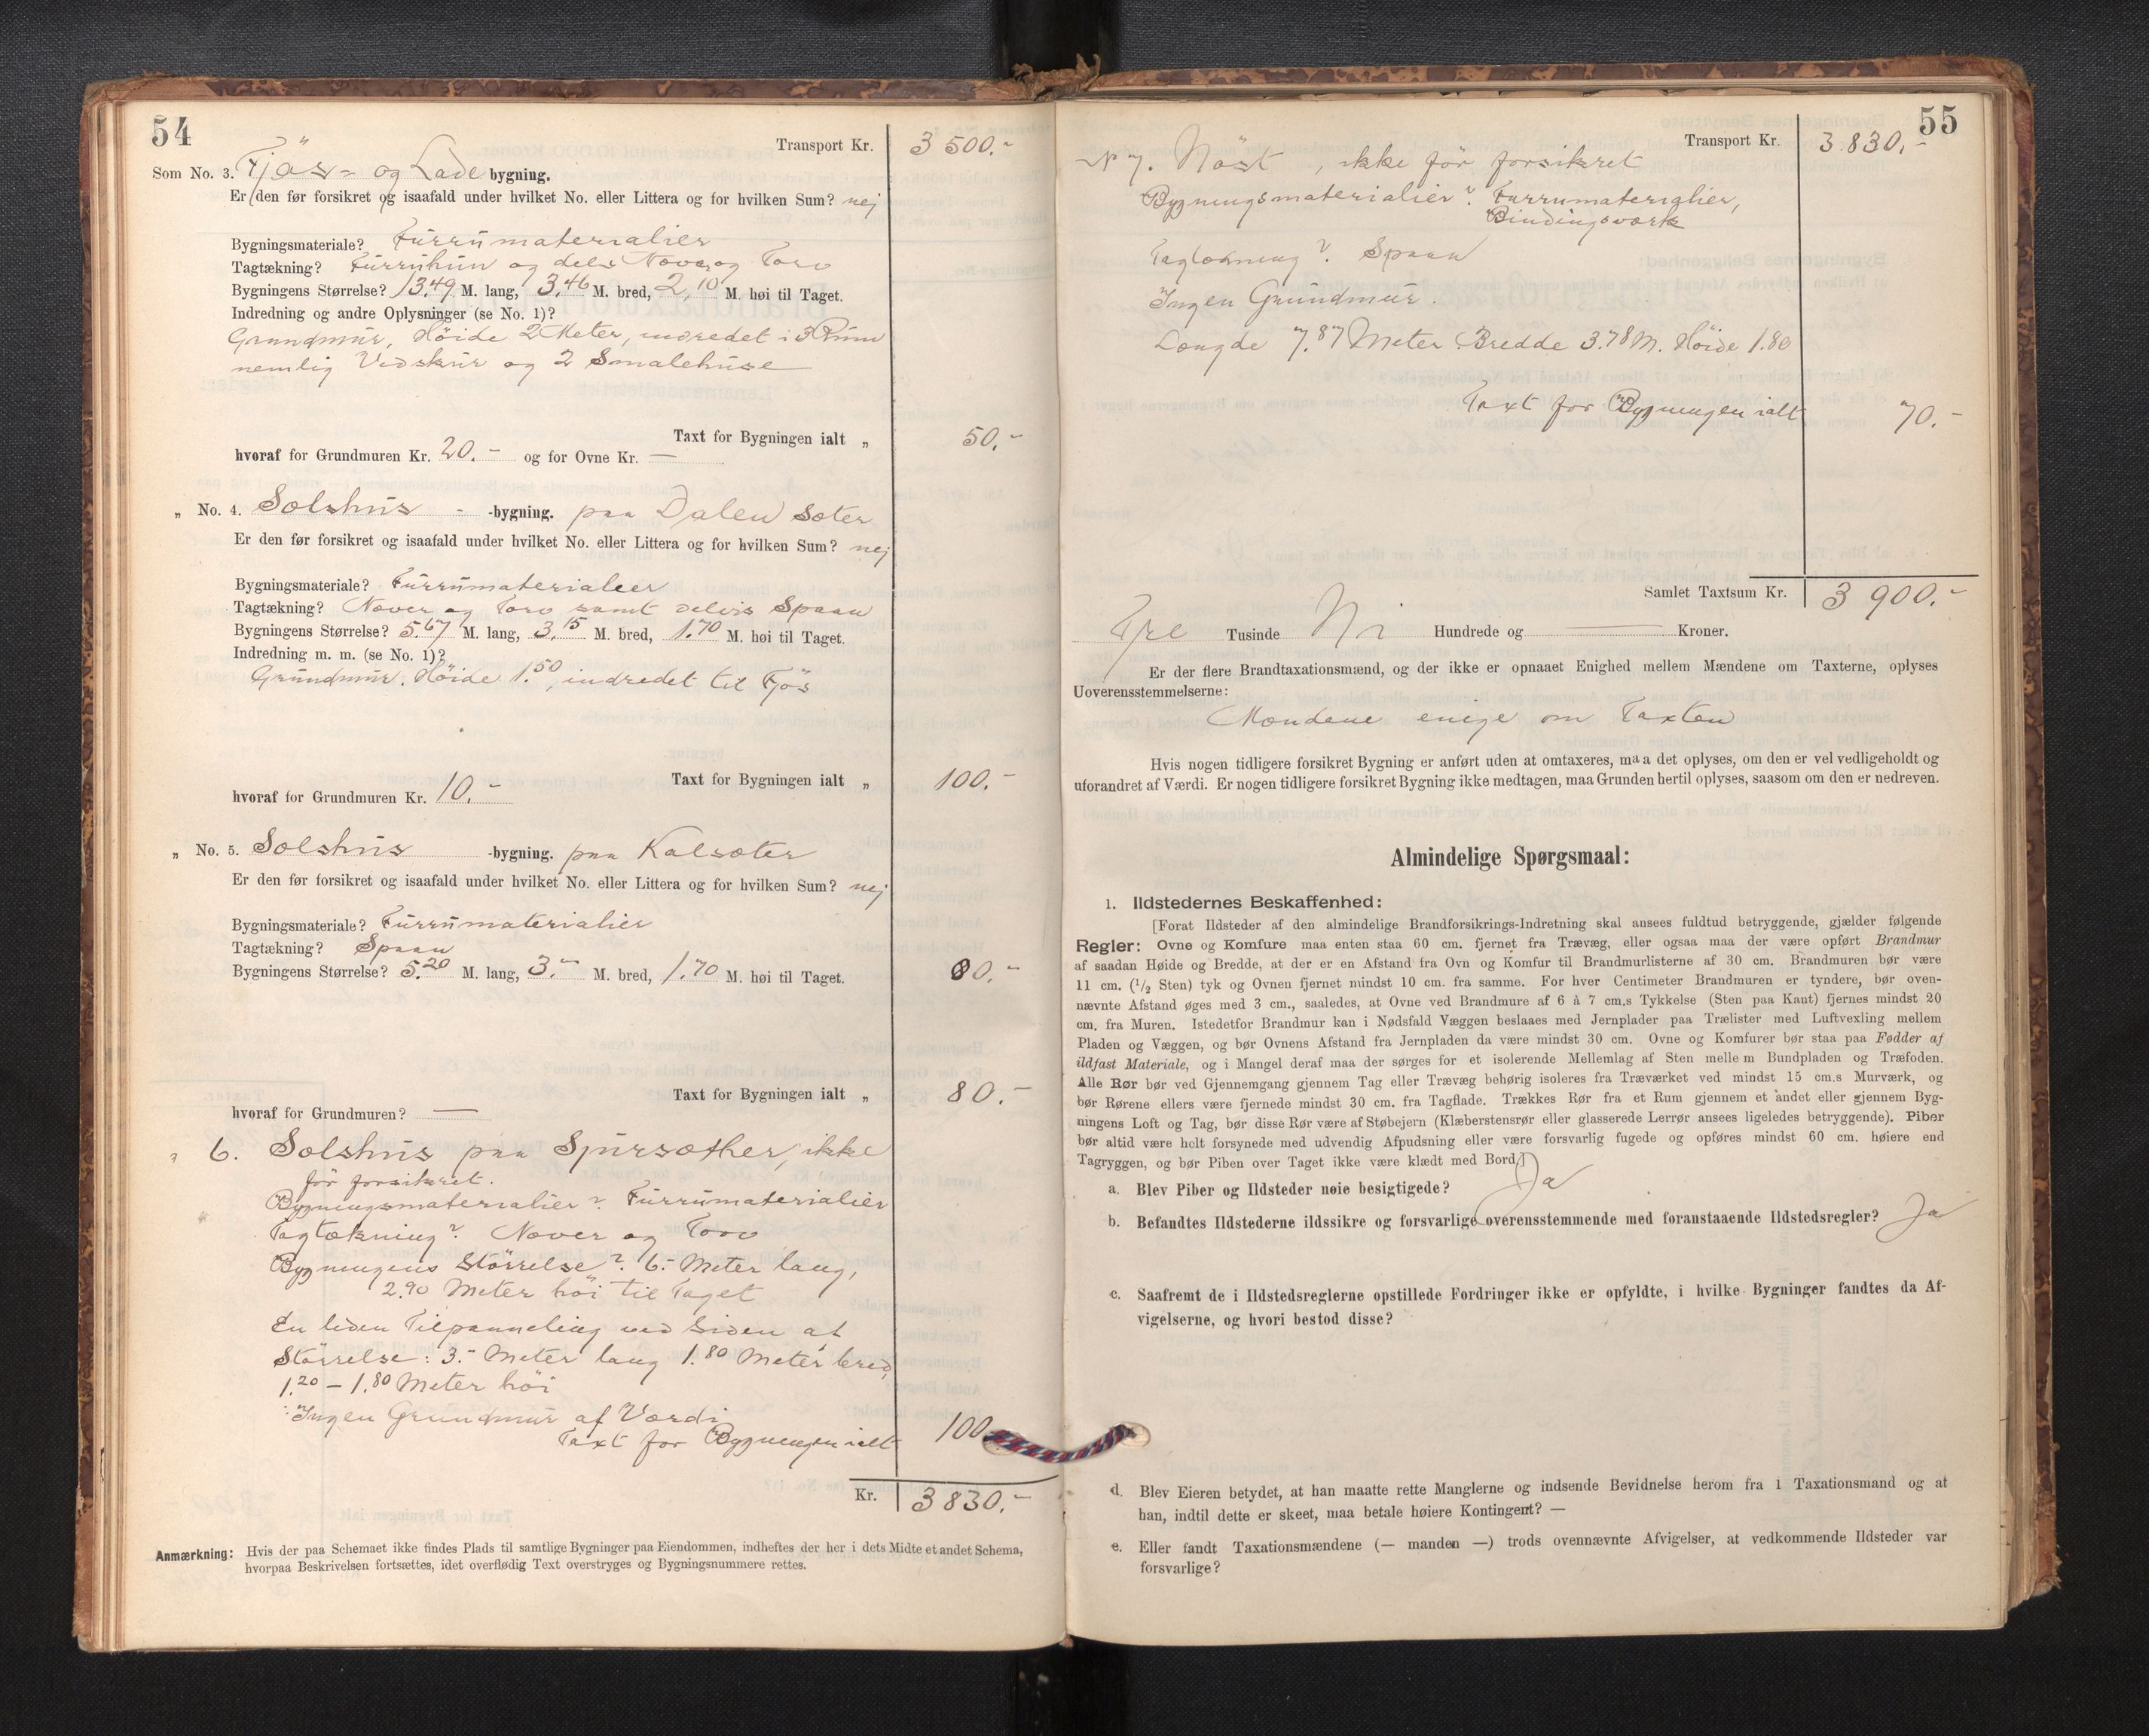 54
Transport Kr. 3 500.-
Som No. 3. Fjös- og Lade bygning.
Er den før forsikret og isaafald under hvilket No. eller Littera og for hvilken Sum? nej
Bygningsmateriale? Furrumaterialier
Tagtækning? Furruhun og dels Næver og Torv
Bygningens Størrelse? 13.49 M. lang, 3.46 M. bred, 2,10 M. høi til Taget.
Indredning og andre Oplysninger (se No. 1)?
Grundmur, Höide 2 Meter, indredet i 3 Rum
nemlig Vedskur og 2 Smalehuse
Taxt for Bygningen ialt „ 50.-
hvoraf for Grundmuren Kr. 20.- og for Ovne Kr. —
„ No. 4. Sælshus - -bygning. paa Dalen Sæter
Er den før forsikret og isaafald under hvilket No. eller Littera og for hvilken Sum? nej
Bygningsmateriale? Furrumaterialier
Tagtækning? Næver og Torv samt delvis Spaan
Bygningens Størrelse? 5.67 M. lang, 3.15 M. bred, 1.70 M. høi til Taget.
Indredning m. m. (se No. 1)?
Grundmur. Höide 1.50, indredet til Fjös
Taxt for Bygningen ialt „ 100.-
hvoraf for Grundmuren Kr. 10.-
„ No. 5. Sælshus -bygning. paa Kalsæter
Er den før forsikret og isaafald under hvilket No. eller Littera og for hvilken Sum? nej
Bygningsmateriale? Furrumaterialier
Tagtækning? Spaan
Bygningens Størrelse? 5.20 M. lang, 3.- M. bred, 1.70 M. høi til Taget. 80.-
Taxt for Bygningen ialt „ 80.-
hvoraf for Grundmuren? —
„ 6. Sælshus paa Spursæther, ikke
för forsikret.
Bygningsmaterialier? Furrumaterialier
Tagtækning? Næver og Torv
Bygningens Störrelse? 6.- Meter lang,
2.90 Meter höi til Taget
En liden Tilpanneling ved Siden af
Störrelse: 3.- Meter lang 1.80 Meter bred,
1.20 - 1.80 Meter höi
Ingen Grundmur af Værdi
Taxt for Bygningen ialt 100
Kr. 3 830.-
Anmærkning: Hvis der paa Schemaet ikke findes Plads til samtlige Bygninger paa Eiendommen, indheftes der her i dets Midte et andet Schema,
hvorpaa Beskrivelsen fortsættes, idet overflødig Text overstryges og Bygningsnummere rettes.
55
Transport Kr. 3 830,-
No 7. Nöst, ikke för forsikret
Bygningsmaterialier? Furrumaterialier,
Bindingsværk
Taglækning? Spaan
Ingen Grundmur.
Længde 7.87 Meter Bredde 3.78 M. Höide 1.80
Taxt for Bygningen ialt 70.-
Samlet Taxtsum Kr. 3 900.-
Tre Tusinde Ni Hundrede og — Kroner.
Er der flere Brandtaxationsmænd, og der ikke er opnaaet Enighed mellem Mændene om Taxterne, oplyses
Uoverensstemmelserne:
Mændene enige om Taxten
Hvis nogen tidligere forsikret Bygning er anført uden at omtaxeres, maa det oplyses, om den er vel vedligeholdt og
uforandret af Værdi. Er nogen tidligere forsikret Bygning ikke medtagen, maa Grunden hertil oplyses, saasom om den er nedreven.
Almindelige Spørgsmaal:
1. Ildstedernes Beskaffenhed:
[Forat Ildsteder af den almindelige Brandforsikrings-Indretning skal ansees fuldtud betryggende, gjælder følgende
Regler: Ovne og Komfure maa enten staa 60 cm. fjernet fra Trævæg, eller ogsaa maa der være opført Brandmur
af saadan Høide og Bredde, at der er en Afstand fra Ovn og Komfur til Brandmurlisterne af 30 cm. Brandmuren bør være
11 cm. (1/2 Sten) tyk og Ovnen fjernet mindst 10 cm. fra samme. For hver Centimeter Brandmuren er tyndere, bør oven-
nævnte Afstand øges med 3 cm., saaledes, at Ovne ved Brandmure af 6 à 7 cm.s Tykkelse (Sten paa Kant) fjernes mindst 20
cm. fra Muren. Istedetfor Brandmur kan i Nødsfald Væggen beslaaes med Jernplader paa Trælister med Luftvexling mellem
Pladen og Væggen, og bør Ovnens Afstand fra Jernpladen da være mindst 30 cm. Ovne og Komfurer bør staa paa Fødder af
ildfast Materiale, og i Mangel deraf maa der sørges for et isolerende Mellemlag af Sten mellem Bundpladen og Træfoden.
Alle Rør bør ved Gjennemgang gjennem Tag eller Trævæg behørig isoleres fra Træværket ved mindst 15 cm.s Murværk, og
bør Rørene ellers være fjernede mindst 30 cm. fra Tagflade. Trækkes Rør fra et Rum gjennem et andet eller gjennem Byg-
ningens Loft og Tag, bør disse Rør være af Støbejern (Klæberstensrør eller glasserede Lerrør ansees ligeledes betryggende). Piber
bør altid være helt forsynede med udvendig Afpudsning eller være forsvarlig fugede og opføres mindst 60 cm. høiere end
Tagryggen, og bør Piben over Taget ikke være klædt med Bord.]
a. Blev Piber og Ildsteder nøie besigtigede? Ja
b. Befandtes Ildstederne ildssikre og forsvarlige overensstemmende med foranstaaende Ildstedsregler? Ja
c. Saafremt de i Ildstedsreglerne opstillede Fordringer ikke er opfyldte, i hvilke Bygninger fandtes da Af-
vigelserne, og hvori bestod disse?
d. Blev Eieren betydet, at han maatte rette Manglerne og indsende Bevidnelse herom fra 1 Taxationsmand og at
han, indtil dette er skeet, maa betale høiere Kontingent? —
e. Eller fandt Taxationsmændene (— manden —) trods ovennævnte Afvigelser, at vedkommende Ildsteder var
forsvarlige?